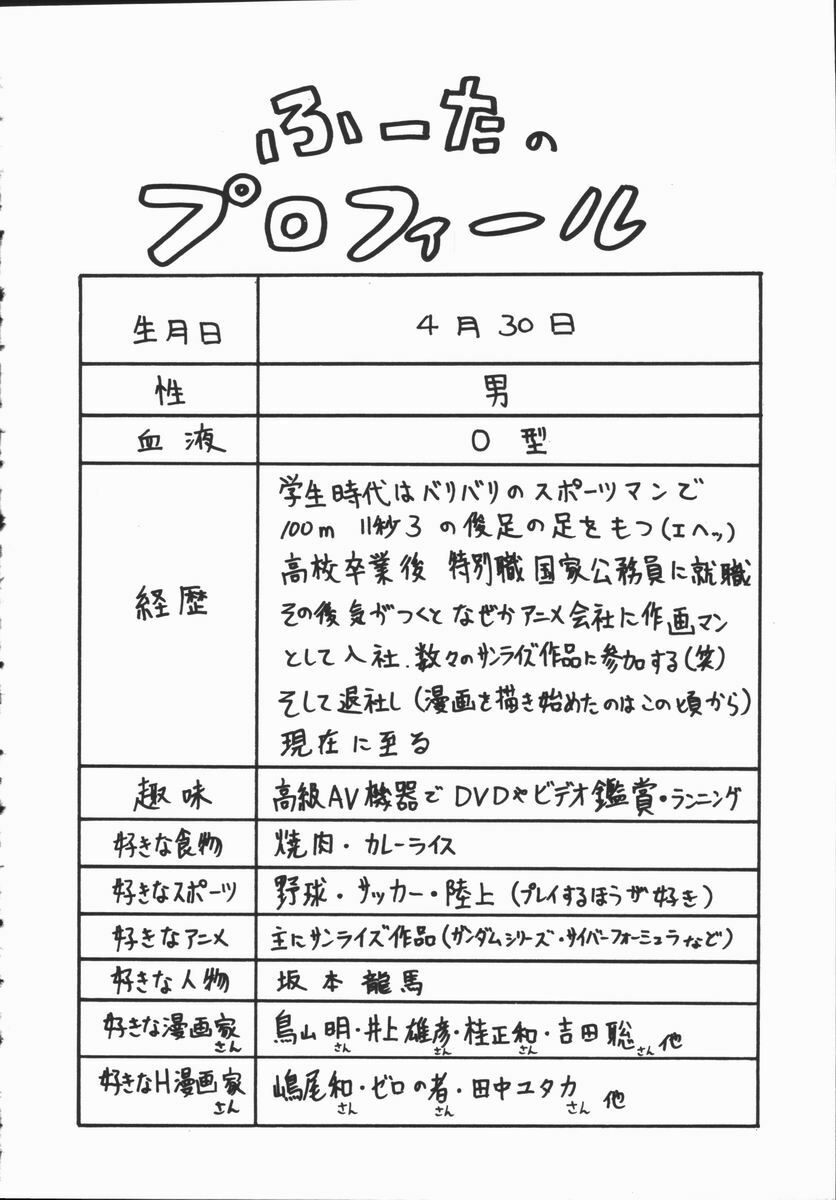 ふーたの
プロフィール
生月日 4月30日
性 男
血液 O型
経歴 学生時代はバリバリのスポーツマンで
100m 11秒3の俊足の足をもつ(エヘッ)
高校卒業後 特別職国家公務員に就職
その後気がつくとなぜかアニメ会社に作画マン
として入社.数々のサンライズ作品に参加する(笑)
そして退社し(漫画を描き始めたのはこの頃から)
現在に至る
趣味 高級AV機器でDVDやビデオ鑑賞・ランニング
好きな食物 焼肉・カレーライス
好きなスポーツ 野球・サッカー・陸上(プレイするほうが好き)
好きなアニメ 主にサンライズ作品(ガンダムシリーズ・サイバーフォーミュラなど)
好きな人物 坂本龍馬
好きな漫画家さん 鳥山明さん・井上雄彦さん・桂正和さん・吉田聡さん他
好きなH漫画家さん 嶋尾和さん・ゼロの者さん・田中ユタカさん他